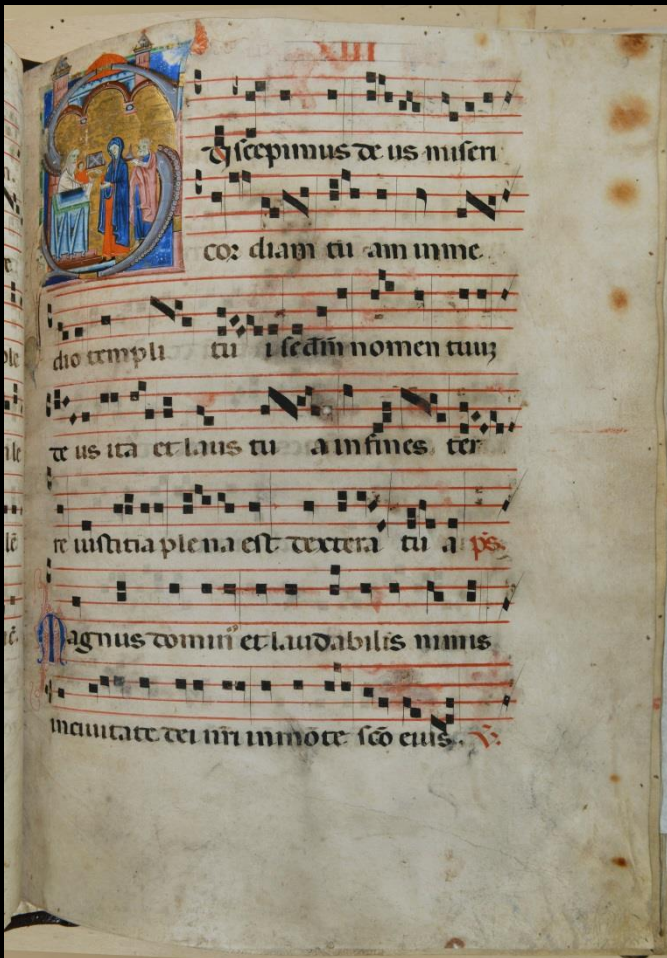 XIII
Suscepimus de us miseri
cor diam tu am inme
dio templi tu i scdm nomen tuuz
de us ita et laus tu a infines ter
re iusticia plena est dextera tu a ps
Magnus domin et laudabilis nimis
inciuitate dei nri inmote sco eius. V.